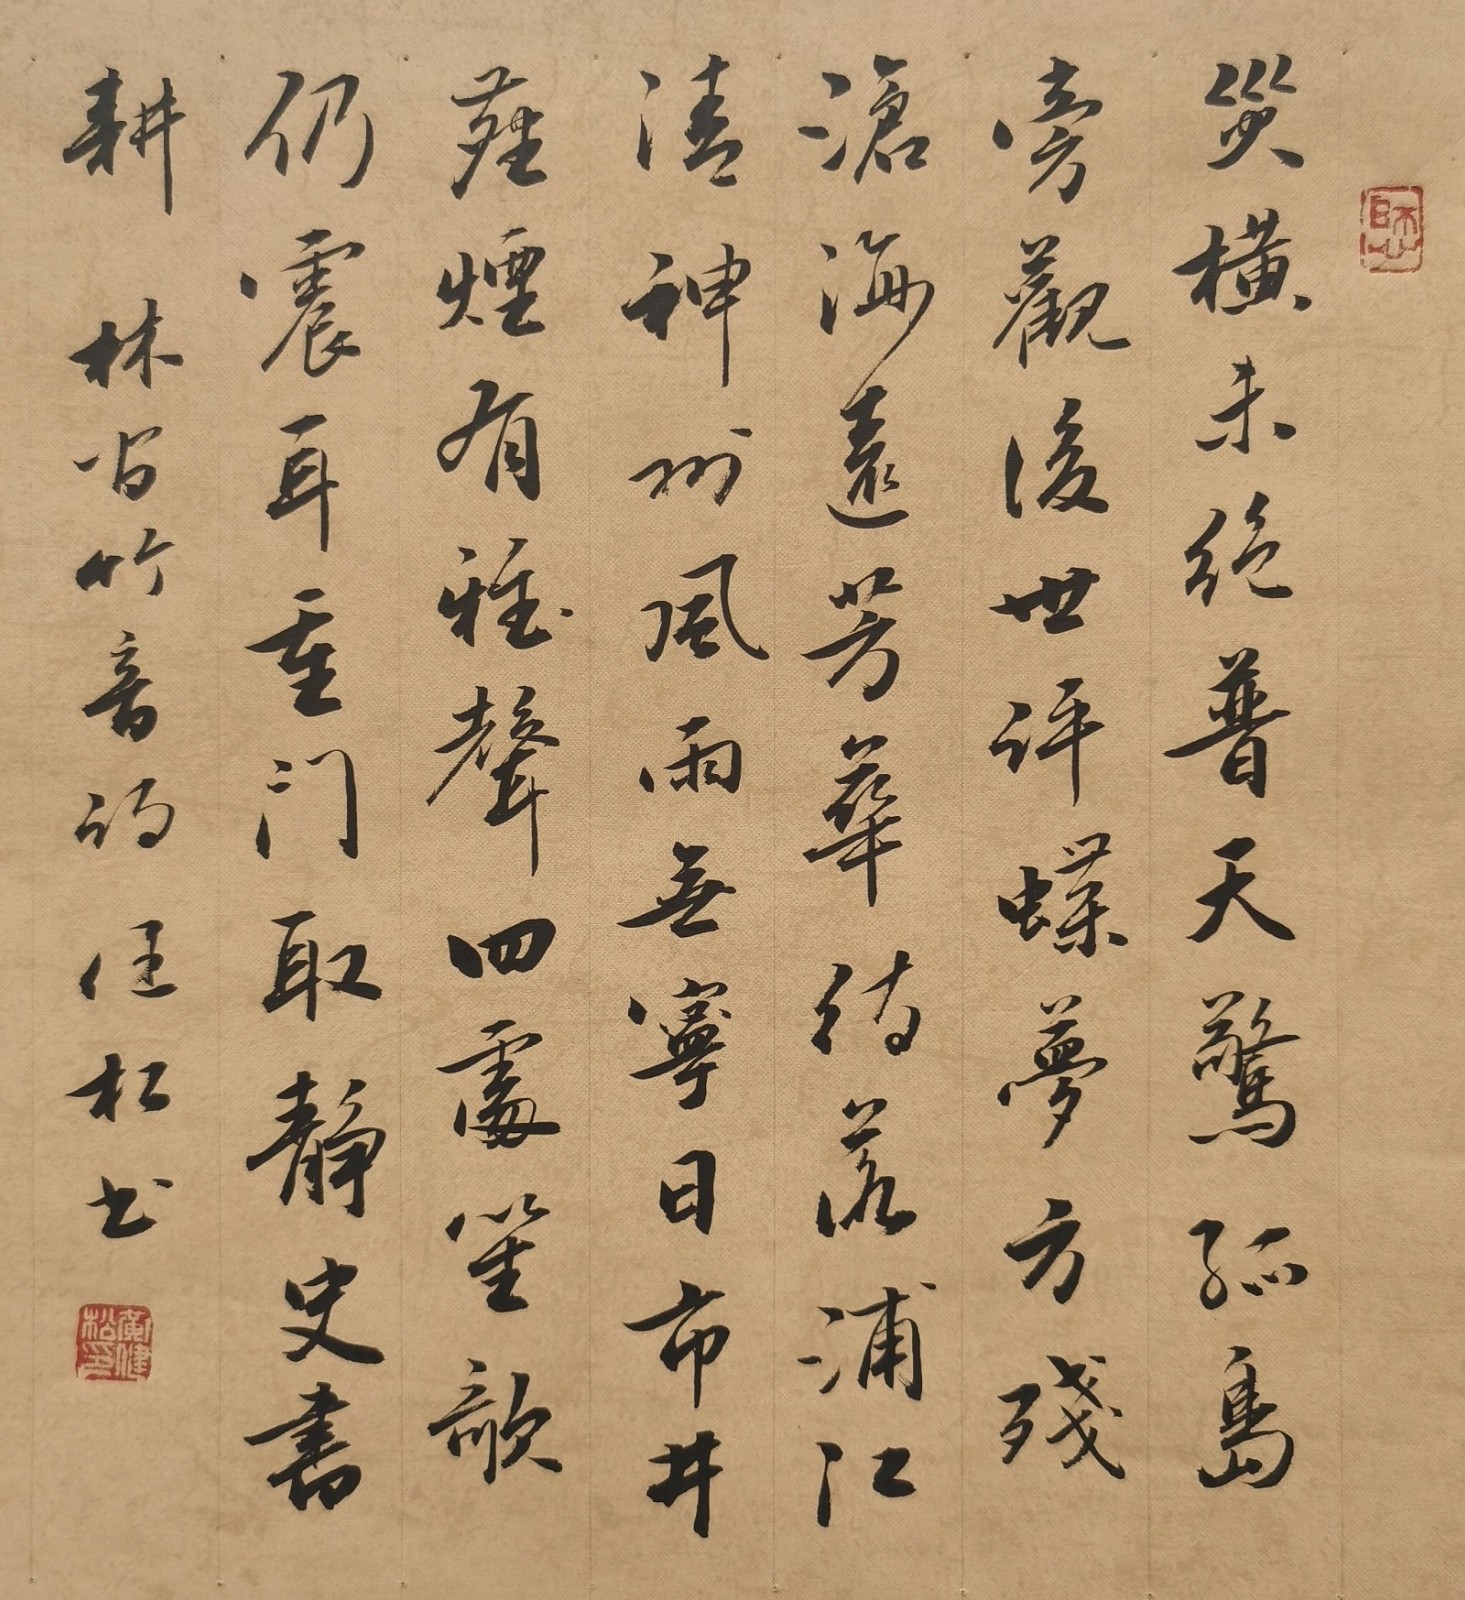 災橫未絕普天驚孤島
旁觀後世評蝶夢方殘
滄海遠芳華待落浦江
清神州風雨無寧日市井
蕪煙有雅聲四處笙歌
仍震耳重門取靜史書
耕 林皆竹音詩 任松书